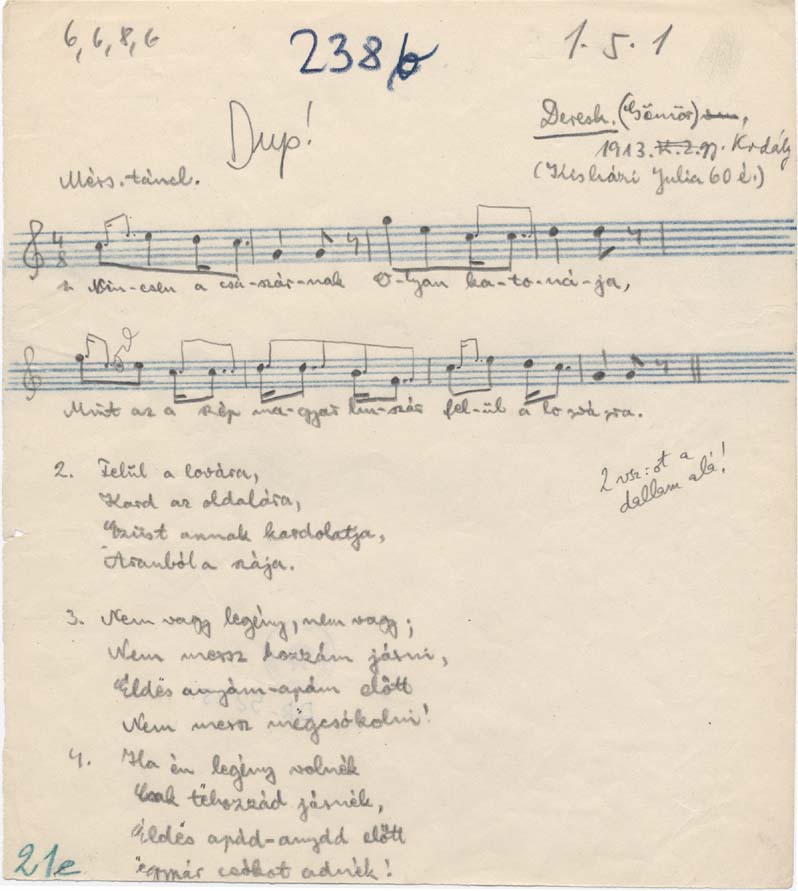 6, 6, 8, 6
238b
1. 5. 1
Dup!
Deresk. (Gömör)
1913. Krdály
(Kisházi Julia 60 é.)
Mérs. táncl.
4
8
1. Nin-csen a csá-szár-nak O-lyan ka-to-ná-ja,
Mint az a szép ma-gyar hu-szár fel-ül a lo vá-ra.
2 vsz:ot a
dallam alá!
2. Felül a lovára,
Kard az oldalára,
Ezüst annak kardolatja,
Aranból a szája.
3. Nem vagy legény, nem vagy;
Nem mersz hozzám járni,
Éldës anyám-apám előtt
Nem mersz mëgcsókolni!
4. Ha én legény volnék
Csak tëhozzád járnék,
Éldës apád-anyád előtt
ëgymár csókot adnék!
21e